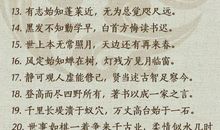 13. 有志始知蓬莱近，无为总觉咫尺远。
14. 黑发不知勤学早，白首方悔读书迟。
15. 世上本无常照月，天边还有再来春。
16. 风定始知蝉在树，灯残方见月临窗。
17. 静可观人虚能修己，贤当述古智足察今。
18. 登高而尽四野所有，著书以成一家之言。
19. 千里长堤溃于蚁穴，万丈高台始于一石。
20. 世事如棋一着争来千古业，柔情似水几时